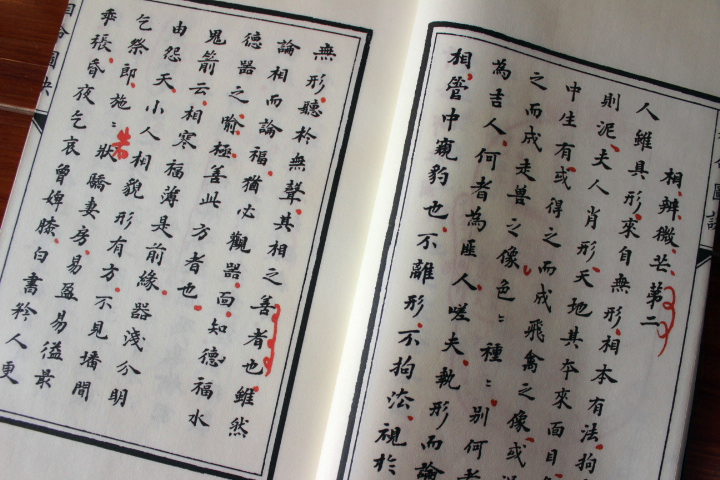 相辨微芒第二
人雖具形來自無形相本有法拘
則泥夫人肖形天地其本來面目
中生有或得之而成飛禽之像或
之而成走獸之像色：種：別何者
為吉人何者為匪人嗟夫執形而論
相管中窺豹也不離形不拘法視於
無形聽於無聲其相之善者也雖然
論相而論福猶必觀器面知德福水
德器之喻極善此方者也
鬼箭云相寒福薄是前緣器淺分明
由怨天小人相貌形有方不見墦間
乞祭郎施：狀驕妻房易盈易溢最
乖張昏夜乞哀曾婢膝白書矜人更